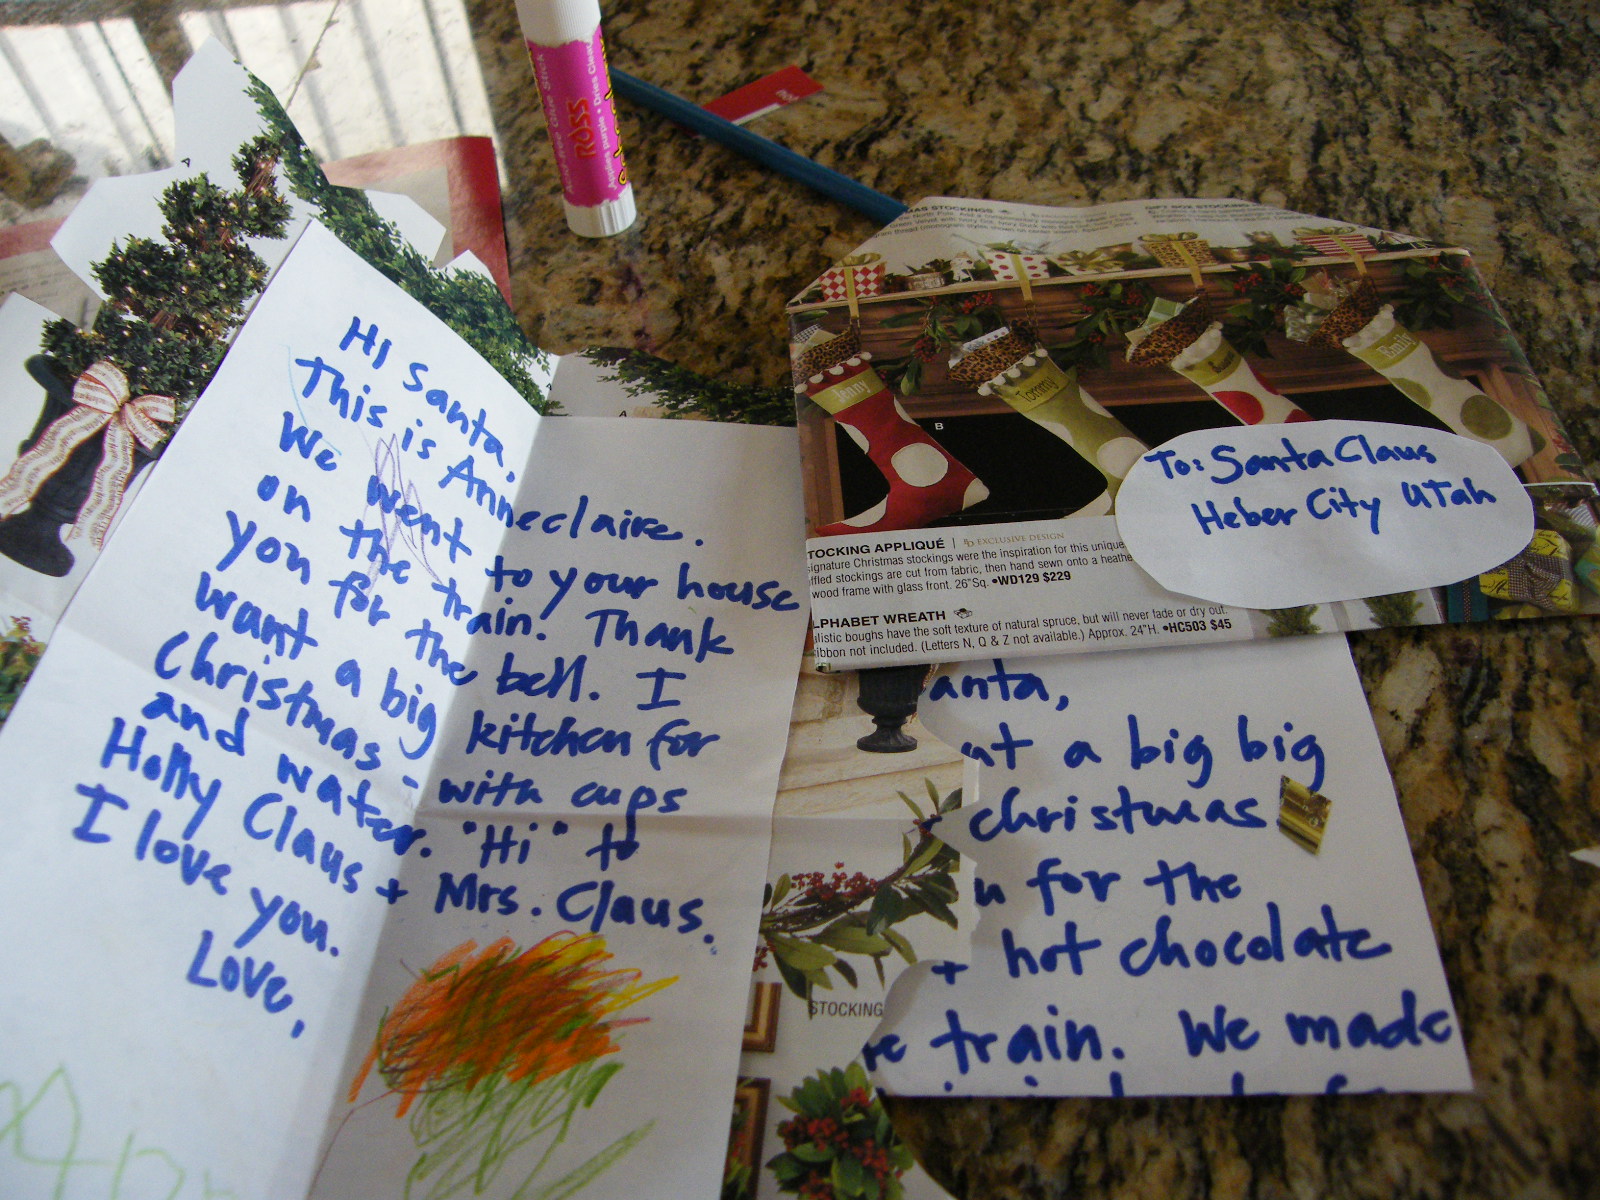 Hi Santa,
This is Anneclaire.
We went to your house
on the train. Thank
you for the bell. I
want a big kitchen for
Christmas - with cups
and water. "Hi" to
Holly Claus + Mrs. Claus.
I love you.
Love,
ROSS
Apples purple • Dries Clear
MAS STOCKINGS
Jenny
Tommy
Emily
B
To: Santa Claus
Heber City UTah
TOCKING APPLIQUÉ | EXCLUSIVE DESIGN
signature Christmas stockings were the inspiration for this unique
ffled stockings are cut from fabric, then hand sewn onto a heathe
wood frame with glass front. 26"Sq. •WD129 $229
LPHABET WREATH
alistic boughs have the soft texture of natural spruce, but will never fade or dry out.
ibbon not included. (Letters N, Q & Z not available.) Approx. 24"H. •HC503 $45
anta,
nt a big big
christmas
u for the
+ hot chocolate
e train. We made
STOCKING
A
A